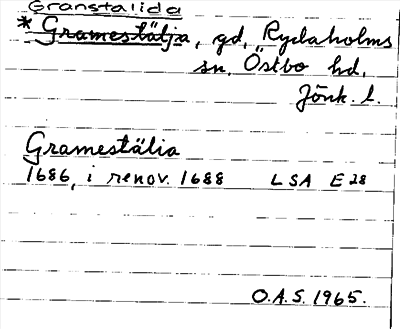 Granstalida
* Gramestälja, gd, Rydaholms
sn, Östbo hd,
Jönk. l.
Gramestälia
1686, i renov. 1688 LSA E 28
O.A.S. 1965.